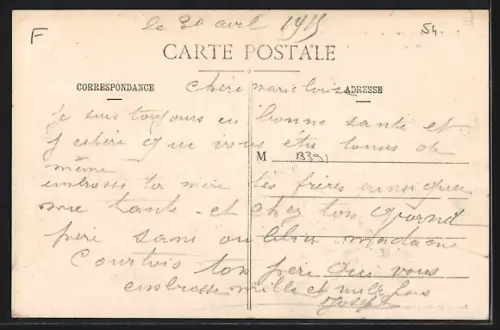 F
le 30 avril 1915
54.
CARTE POSTALE
CORRESPONDANCE
ADRESSE
chère marie louise
Je suis toujours en bonne santé et
j espère que vous ête tousse de
M
B391
même
embrasse ta mère tes frères ainsi que
ma tante et chez ton grand
père sans oublier madame
Courtois ton père qui vous
embrasse mille et mille fois
Joseph